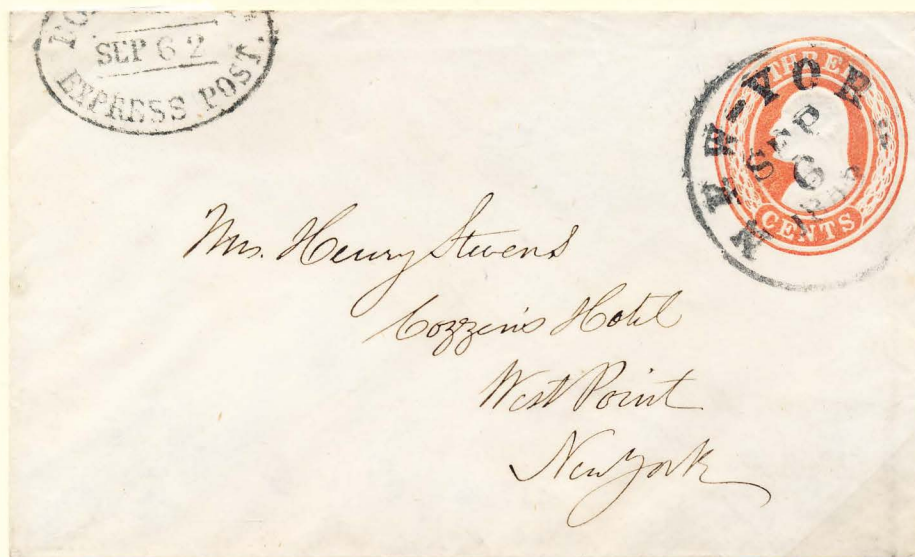 SEP 6 2
EXPRESS POST.
THREE
NEW-YORK
SEP
6
CENTS
Mrs. Henry Stevens
Cozzen's Hotel
West Point
New York